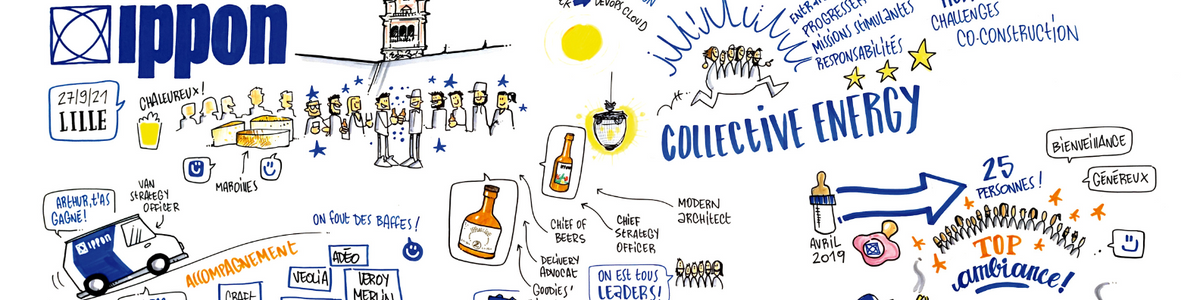 ippon
27/9/21
LILLE
CHALEUREUX!
MAROILLES
ARTHUR, T'AS
GAGNÉ!
VAN
STRATEGY
OFFICER
ippon
ACCOMPAGNEMENT
ON FOUT DES BAFFES!
ADÉO
VEOLIA
LEROY
MERLIN
DEVOPS CLOUD
PROGRESSER
MISSIONS STIMULANTES
RESPONSABILITÉS
CHALLENGES
CO-CONSTRUCTION
COLLECTIVE ENERGY
CHIEF OF
BEERS
CHIEF
STRATEGY
OFFICER
MODERN
ARCHITECT
DELIVERY
ADVOCAT
GOODIES'
ON EST TOUS
LEADERS!
AVRIL
2019
25
PERSONNES!
BIENVEILLANCE
GÉNÉREUX
TOP
ambiance!